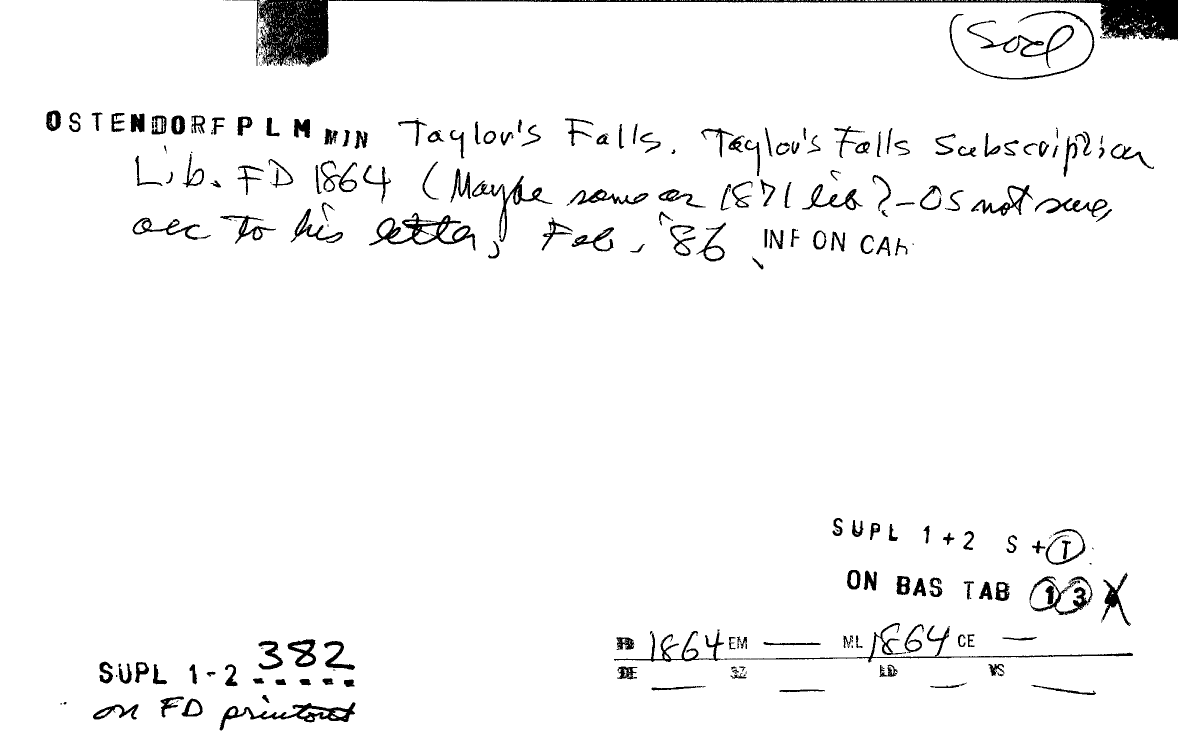 Socl
OSTENDORF P L M MIN Taylor's Falls. Taylor's Falls Subscription
Lib. FD 1864 (Maybe same as 1871 lib? - OS not sure,
acc to his letter, Feb, '86 INF ON CAR
SUPL 1+2 S + T
ON BAS TAB 1 3
FD 1864 EM — ML 1864 CE —
DE — SZ — LD — VS —
SUPL 1-2 382
on FD printout